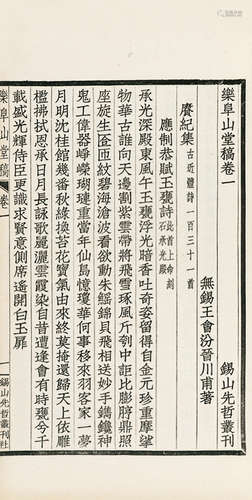 樂阜山堂稿卷一 錫山先哲叢刊
無錫王會汾晉川甫著
賡紀集 古近體詩一百三十一首
應制恭賦玉甕詩 此首上命刻石承光殿
承光深殿東風午玉甕浮光暗香吐奇姿留得自金元珍重摩挲
物華古誰向天邊割紫雲帶將飛雪琢風斤刳中詎比膨脝鼎照
座旋生匜匝紋碧海滄波看欲動朱鱬錦貝飛相送妙手鐫鏤神
鬼工偉器崢嶸瑚璉重當年仙島憶瓊華何事移來羽客家一夢
月明沈桂館幾番秋綠換苔花寶氣由來終莫掩還歸天上依雕
檻拂拭恩承日月長詠歌麗灑雲霞染自昔遭逢會有時甕兮千
載盛光輝侍臣更識求賢意側席遙開白玉扉
樂阜山堂稿 卷一 一 錫山先哲叢刊社